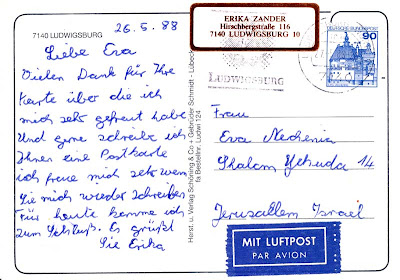 7140 LUDWIGSBURG
26.5.88
Liebe Eva
Vielen Dank für Ihre
Karte über die ich
mich sehr gefreut habe
Und gerne schreibe ich
Ihnen eine Postkarte
ich freue mich sehr wenn
Sie mich wieder schreiben
Für heute komme ich
zum Schluß. Es grüßt
Sie Erika
Herst. u. Verlag Schöning & Co + Gebrüder Schmidt - Lübeck
Bestellnr. Ludwi 124
ERIKA ZANDER
Hirschbergstraße 116
7140 LUDWIGSBURG 10
LUDWIGSBURG
DEUTSCHE BUNDESPOST
90
Frau
Eva Nechemia
Shalom Yehuda 14
Jerusallem Israel
MIT LUFTPOST
PAR AVION